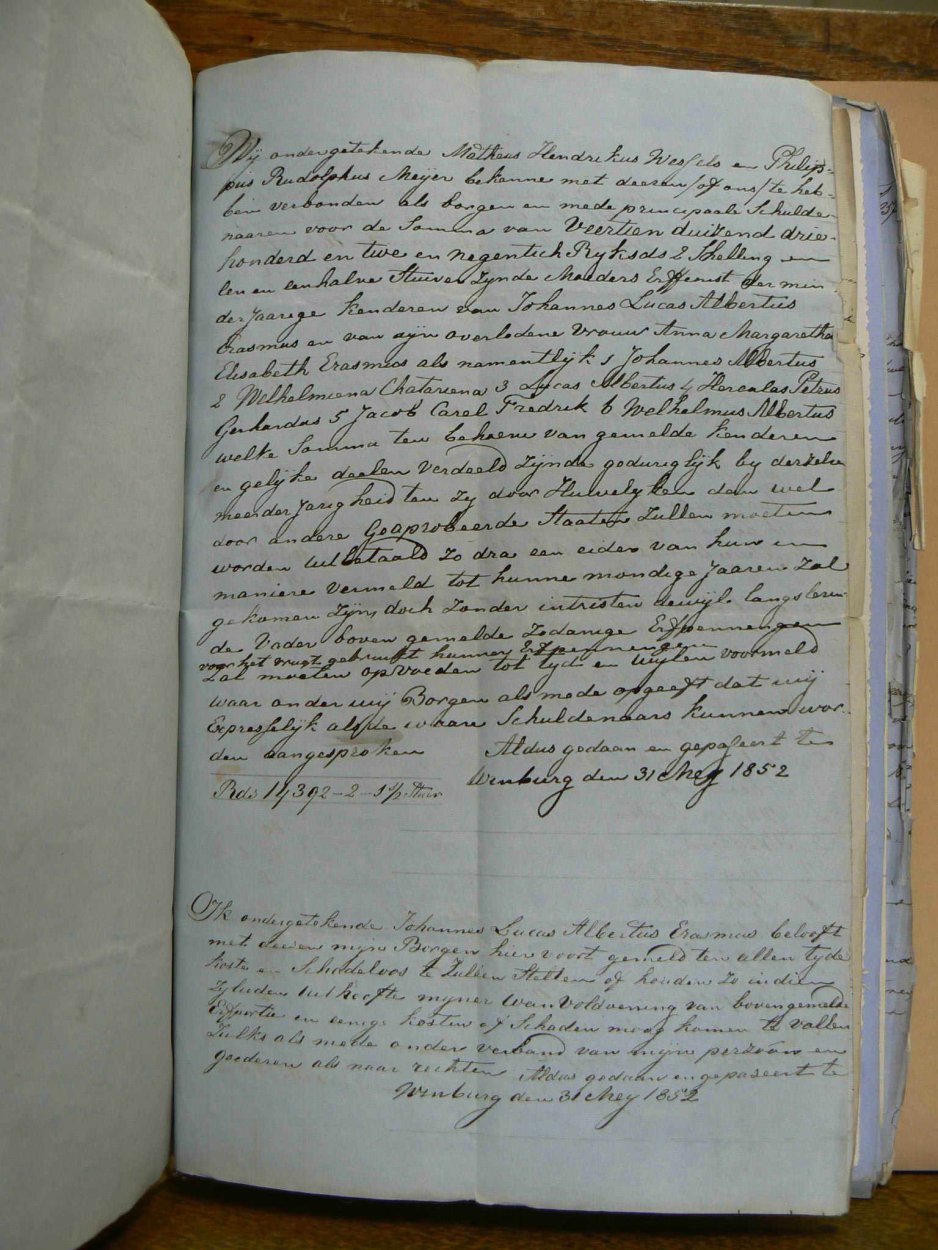 Wij ondergetekende Matheus Hendrikus Wessels en Philip-
pus Rudolphus Meyer bekenne met deezen /of ons/ te heb-
ben verbonden als borgen en mede principaale Schulde-
naaren voor de Somma van Veertien duizend drie-
honderd en twe en negentich Ryksds 2 Schelling en
en een halve Stuiver Zynde Moeders Erffenist der min
der Jaarige kenderen van Johannes Lucas Albertus
Erasmus en van zyn overledene Vrouw Anna Margaretha
Elisabeth Erasmus als namentlijk 1 Johannes Albertus
2 Welhelmiena Chatariena 3 Lucas Albertus 4 Herculas Petrus
Gerhardus 5 Jacob Carel Fredrik 6 Welhelmus Albertus
welke Somma ten behoeve van gemelde kenderen
en gelijke deelen Verdeeld Zijnde geduriglijk by derzelve
meerder Jarigheid ten Zy door Huwelyken dan wel
door andere Geaprobeerde Staaten Zullen moeten
worden uitbetaald Zo dra een eider van hun in
maniere vermeld tot hunne mondige Jaaren Zal
gekomen Zijn, doch Zonder intristen dewijl langsleven-
de Vader boven gemelde Zodanige Erffpennengen
voor het vrugt gebruikt hunner Erfpennengen
Zal moeten opvoeden tot tyde en wylen voormeld
waar onder wij Borgen als mede opgeeft dat wij
Expresselijk als de waare Schuldenaars kunnen wor-
den aangesproken Aldus gedaan en gepaseert te
Winburg den 31 Mey 1852
Rds 14392-2-1/2 Stuir
Ik ondergetekende Johannes Lucas Albertus Erasmus belooft
met deezen mijn Borgen hier voort gemeld ten allen tyde
koste en Schadeloos te Zullen Stellen of houden Zo indien
Zyluden uit hoofte myner Wanvoldoening van bovengemelde
en eenige kosten of Schaden mogt komen te vallen
Zulks als mede onder verband van mijn perzoon en
goederen als naar rechten Aldus gedaan en gepaseert te
Winburg den 31 Mey 1852